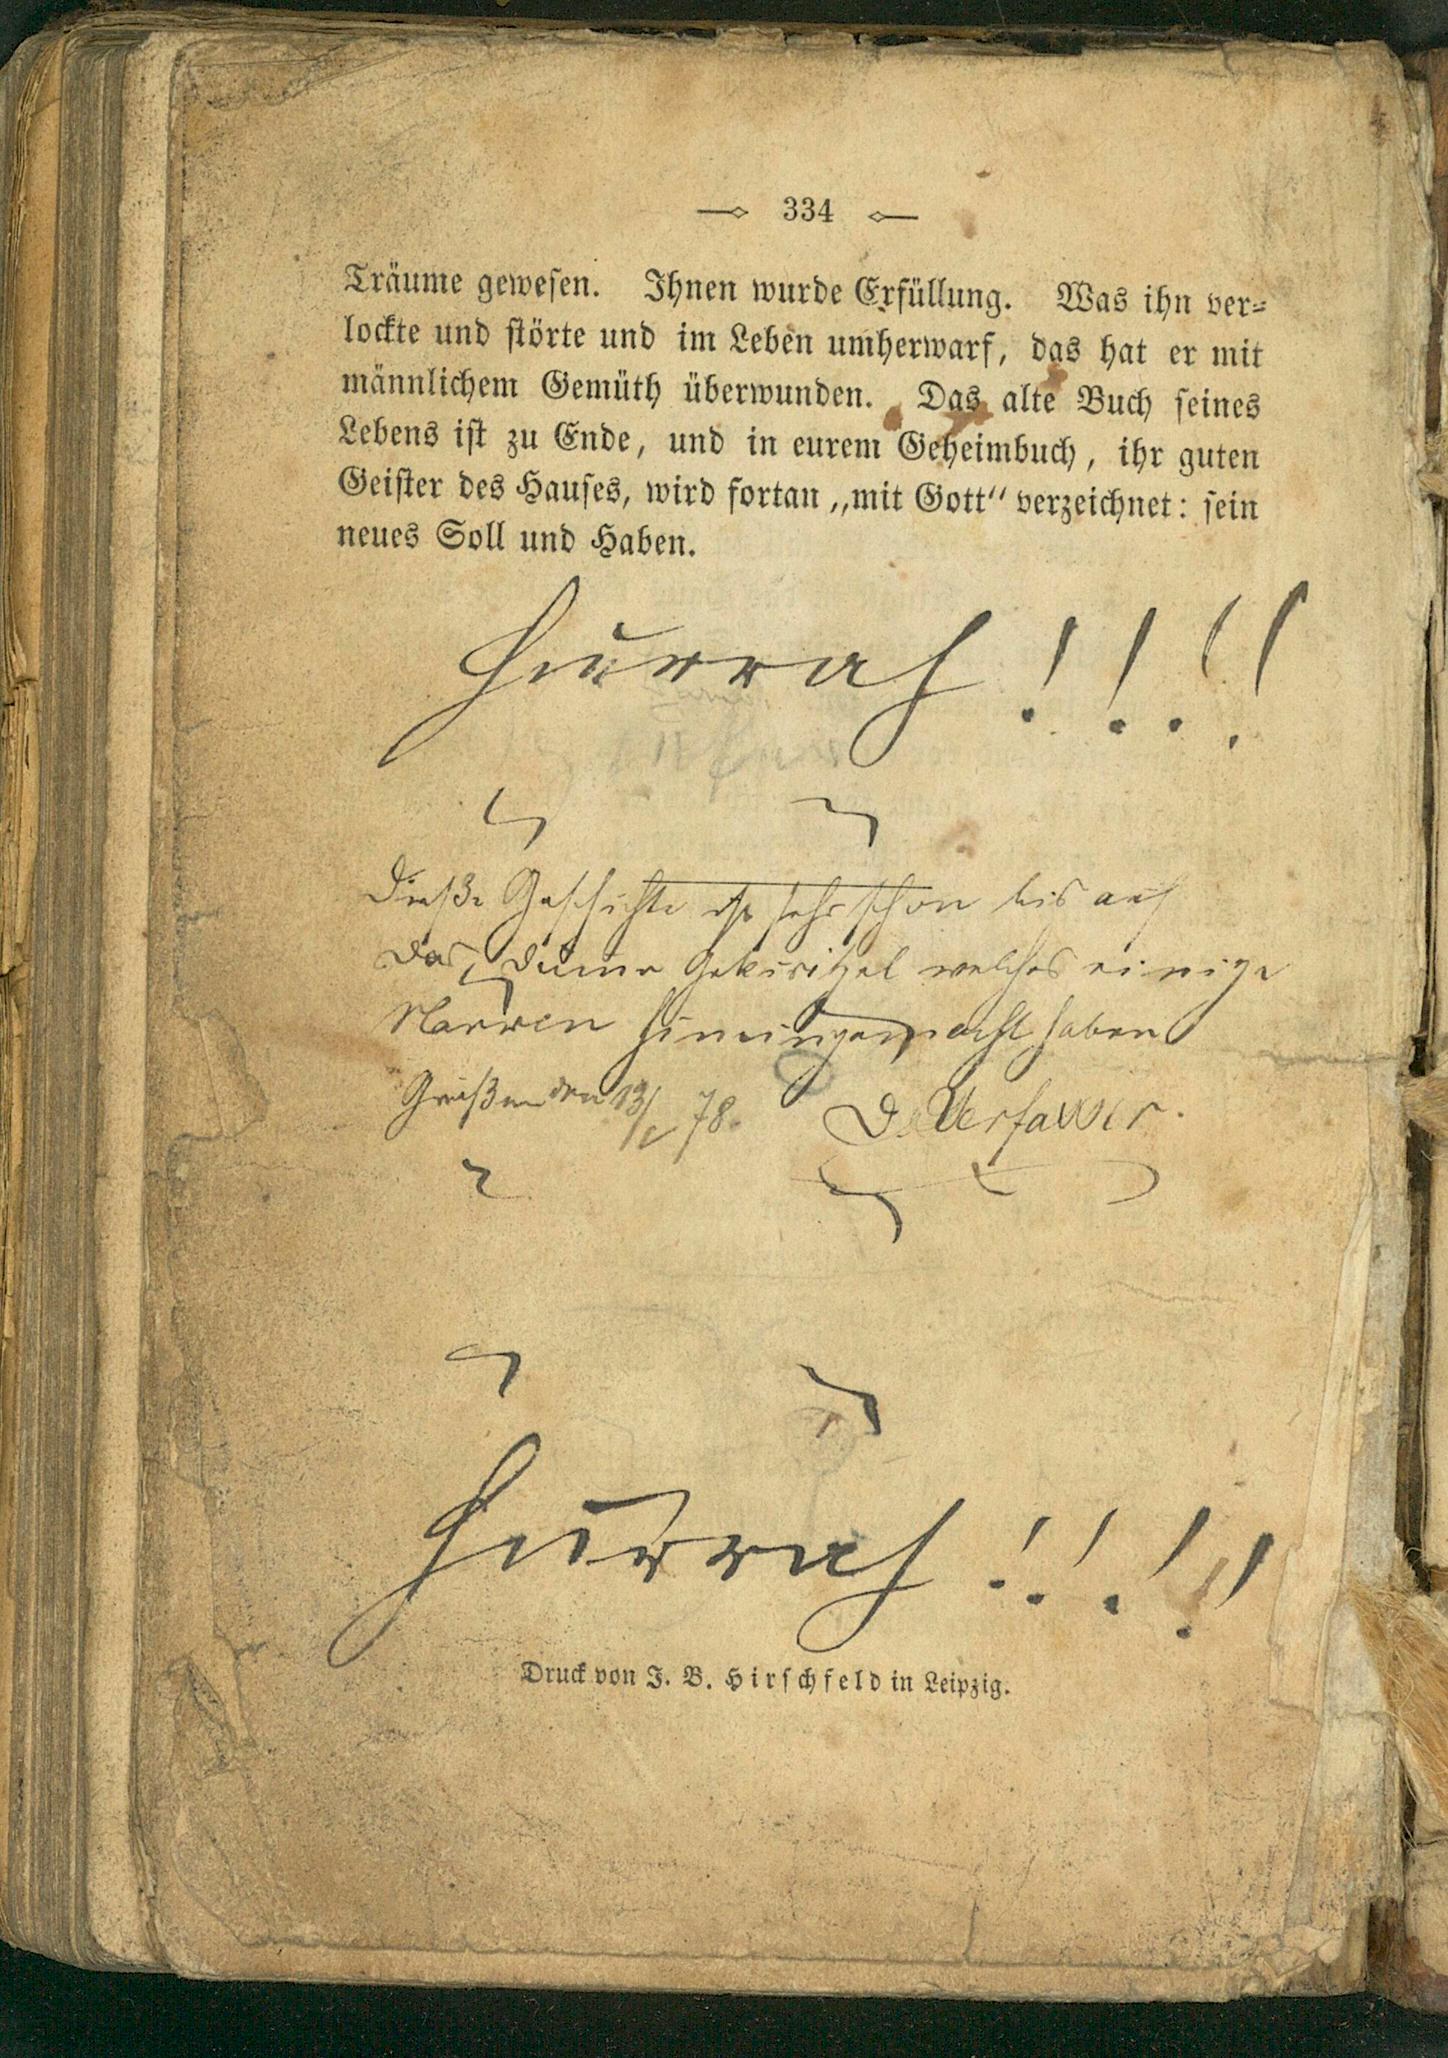 334
Träume gewesen. Ihnen wurde Erfüllung. Was ihn ver-
lockte und störte und im Leben umherwarf, das hat er mit
männlichem Gemüth überwunden. Das alte Buch seines
Lebens ist zu Ende, und in eurem Geheimbuch, ihr guten
Geister des Hauses, wird fortan „mit Gott“ verzeichnet: sein
neues Soll und Haben.
Hurrah!!!!
Dieße Geschichte ist sehr schon bis auf
das dume Gekritzel welches einige
Narren hineingemacht haben
den 13/ 78. Der Verfasser.
Hurrah!!!!
Druck von J. B. Hirschfeld in Leipzig.